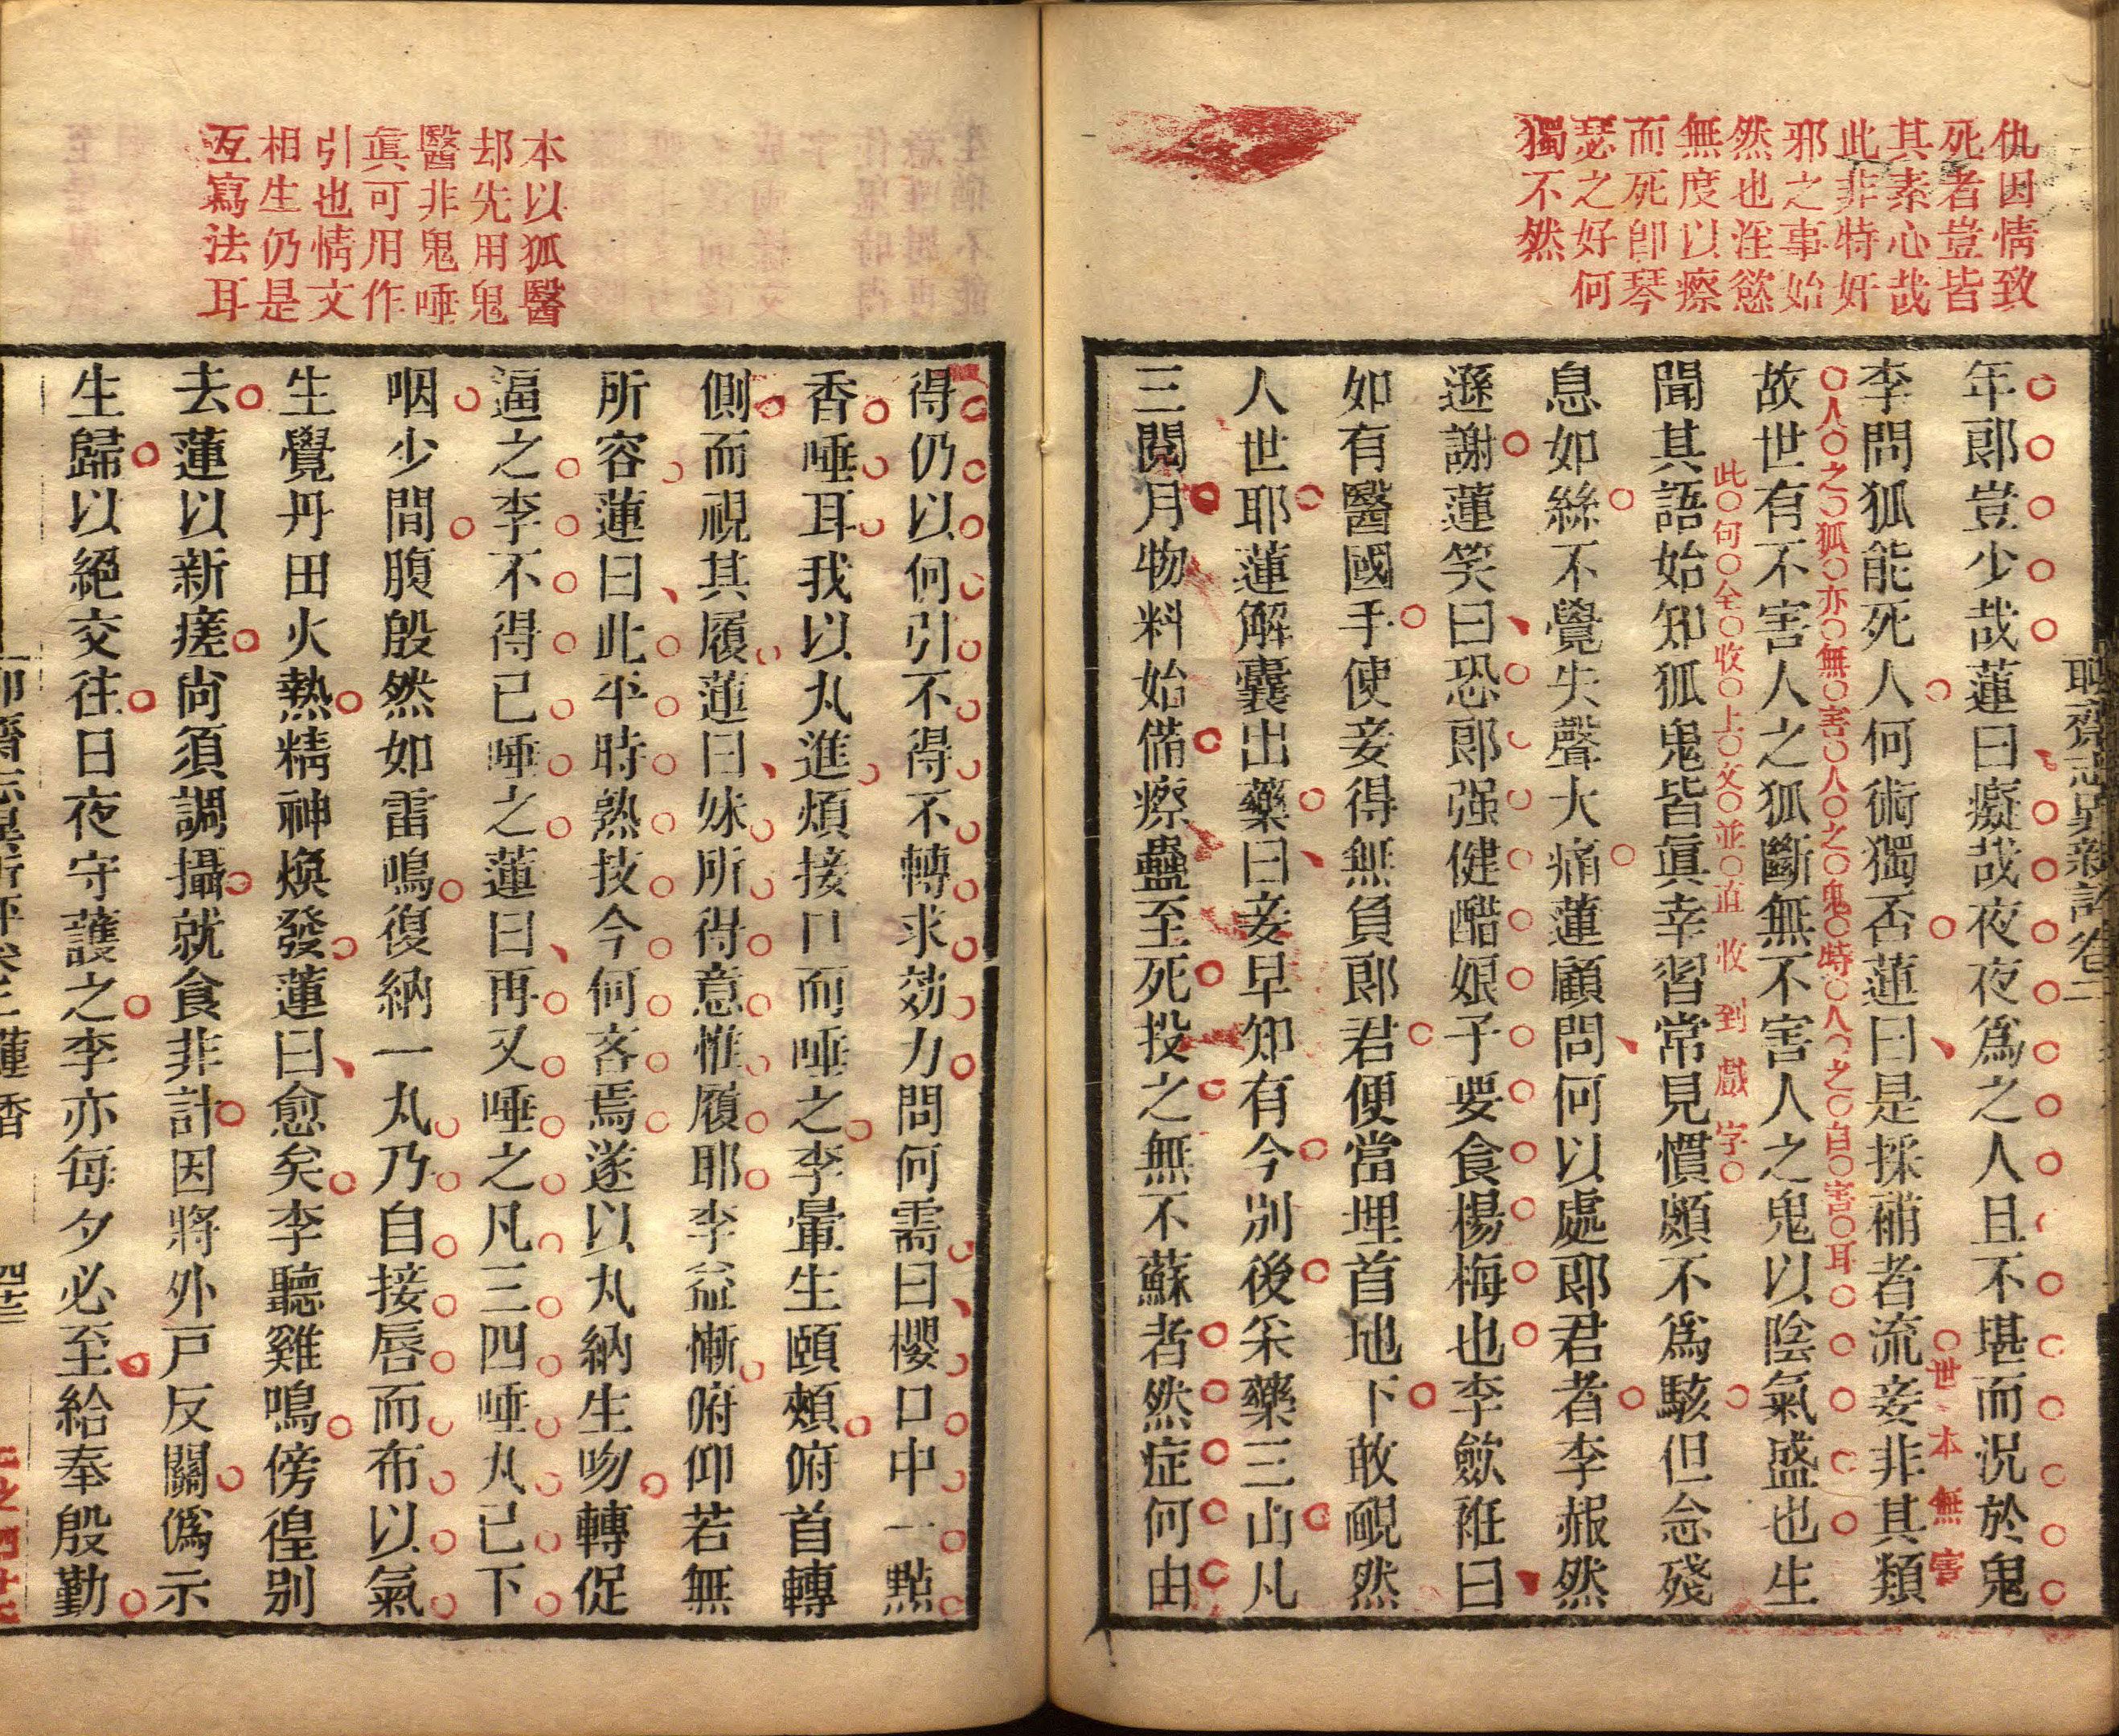 仇因情致
死者豈皆
其素心哉
此非特奸
邪之事始
然也淫慾
無度以瘵
而死卽琴
瑟之好何
獨不然
年郎豈少哉蓮曰癡哉夜夜爲之人且不堪而況於鬼
世本無害
李問狐能死人何術獨否蓮曰是採補者流妾非其類
人之狐亦無害人之鬼時人之自害耳
故世有不害人之狐斷無不害人之鬼以陰氣盛也生
此句全收上文並直收到戲字
聞其語始知狐鬼皆眞幸習常見慣頗不爲駭但念殘
息如絲不覺失聲大痛蓮顧問何以處郎君者李赧然
遜謝蓮笑曰恐郎强健醋娘子要食楊梅也李斂袵曰
如有醫國手使妾得無負郎君便當埋首地下敢靦然
人世耶蓮解囊出藥曰妾早知有今別後采藥三山凡
三閱月物料始備瘵蠱至死投之無不蘇者然症何由
本以狐醫
却先用鬼
醫非鬼唾
眞可用作
引也情文
相生仍是
互寫法耳
得仍以何引不得不轉求効力問何需曰櫻口中一點
香唾耳我以丸進煩接口而唾之李暈生頤頰俯首轉
側而視其履蓮曰妹所得意惟履耶李益慚俯仰若無
所容蓮曰此平時熟技今何吝焉遂以丸納生吻轉促
逼之李不得已唾之蓮曰再又唾之凡三四唾丸已下
咽少間腹殷然如雷鳴復納一丸乃自接唇而布以氣
生覺丹田火熱精神煥發蓮曰愈矣李聽雞鳴傍徨别
去蓮以新瘥尚須調攝就食非計因將外戸反關僞示
生歸以絕交往日夜守護之李亦每夕必至給奉殷勤